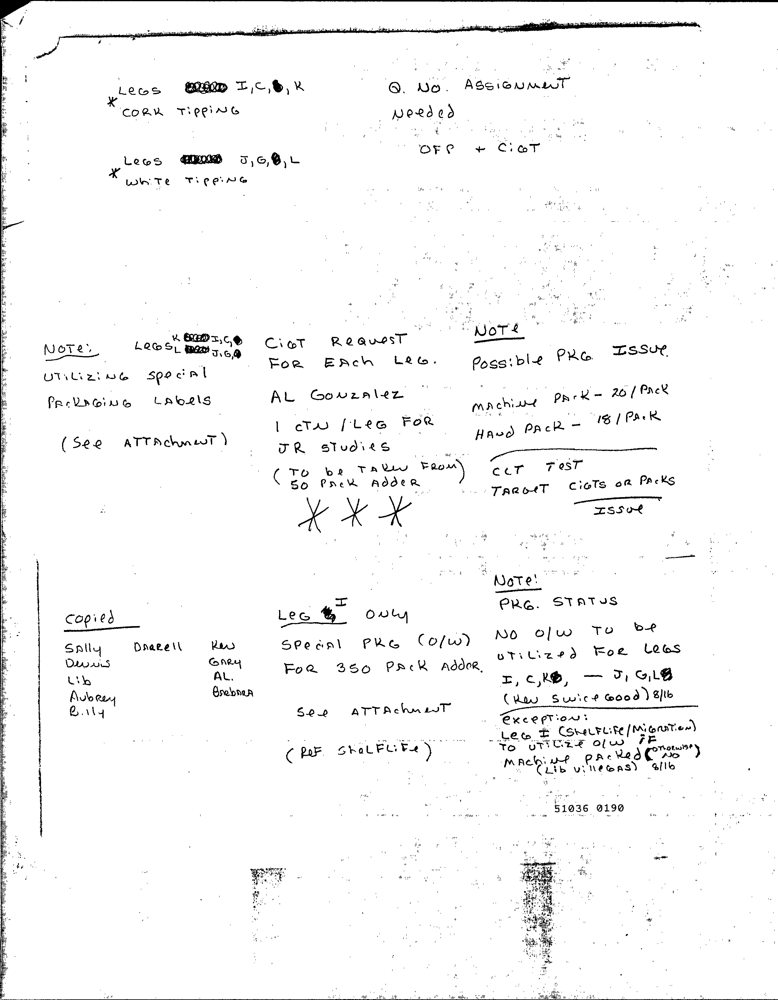 Legs I, C, K
* Cork Tipping
Legs J, G, L
* White Tipping
Q. No. Assignment
Needed
OFP + CIGT
Note:
Legs K I, C,
L J, G,
Utilizing special
Packaging Labels
(See Attachment)
CIGT Request
For Each Leg.
Al Gonzalez
1 CTN / Leg For
JR Studies
(To be Taken From
50 Pack Adder)
* * *
Note
Possible Pkg Issue.
Machine Pack - 20/Pack
Hand Pack - 18/Pack
CLT Test
Target CIGTS or Packs
Issue
Copied
Sally Darrell Ken
Dennis Gary
Lib AL.
Aubrey Barbara
Billy
Leg I Only
Special Pkg (O/W)
For 350 Pack Adder.
See Attachment
(Ref Shelflife)
Note!
Pkg. Status
No O/W To be
Utilized For Legs
I, C, K, — J, G, L
(Ken Swicegood) 8/16
Exception:
Leg I (Shelflife/Migration)
To Utilize O/W if
Machine Packed (otherwise No)
(Lib Villegas) 8/16
51036 0190